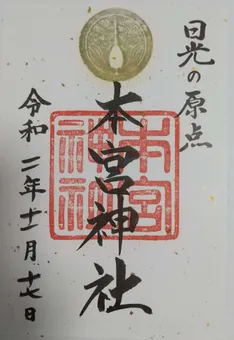 日光の原点
本宮神社
本宮神社
令和二年十一月十七日